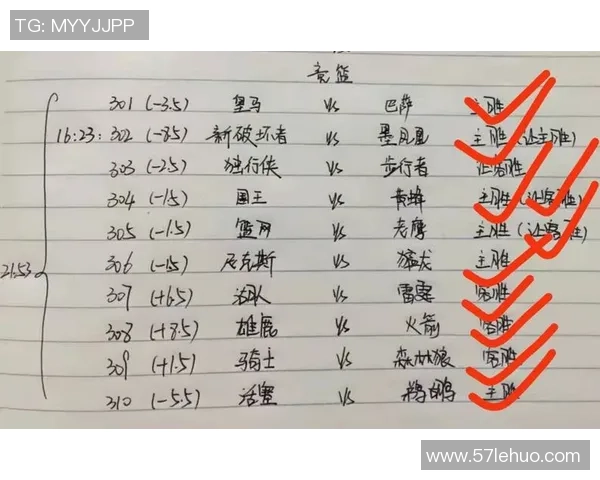 TG: MYYJJPP
竞篮
301 (-3.5) 皇马 vs 巴萨 主胜
16:23: 302 (-8.5) 新破坏者 vs 墨凤凰 主胜 (让主胜)
303 (-2.5) 独行侠 vs 步行者 让客胜
304 (-1.5) 国王 vs 黄蜂 主胜 (让客胜)
305 (-1.5) 篮网 vs 老鹰 主胜 (让客胜)
306 (-1.5) 尼克斯 vs 猛龙 主胜
21:53
307 (+6.5) vs 雷霆 客胜
308 (+8.5) 雄鹿 vs 火箭 客胜
309 (+1.5) 马奇士 vs 森林狼 客胜
310 (-5.5) 活塞 vs 鹈鹕 主胜
www.57lehuo.com